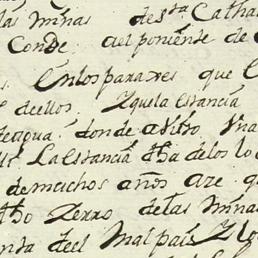 las minas de sta Catha
Conde del poniente de
En los paraxes que
dellos. Zquela Estancia
de agua donde a Vitto Vna
La Estancia dha de los lo
de muchos años aze que
dho Zerro de las minas
del Mal pais Z lo